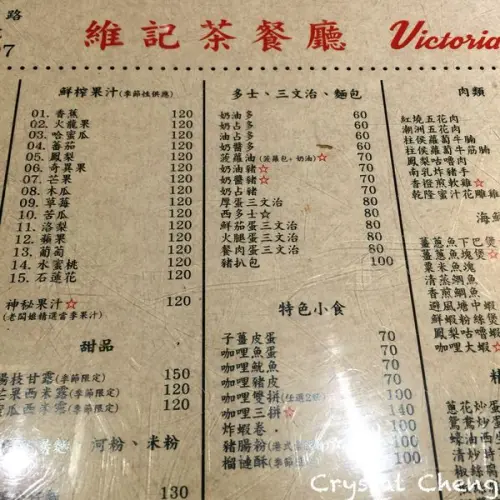 路
07
維記茶餐廳 Victoria
鮮榨果汁(季節性供應)
01. 香蕉 120
02. 火龍果 120
03. 哈蜜瓜 120
04. 蕃茄 120
05. 鳳梨 120
06. 奇異果 120
07. 芒果 120
08. 木瓜 120
09. 草莓 120
10. 苦瓜 120
11. 洛梨 120
12. 蘋果 120
13. 葡萄 120
14. 水蜜桃 120
15. 石蓮花 120
神秘果汁☆ 120
(老闆娘精選當季果汁)
甜品
枝甘露(季節限定) 150
芒果西米露(季節限定) 120
蜜瓜西米露(季節限定) 120
河粉、米粉
130
多士、三文治、麵包
奶油多 60
奶占多 60
油占多 60
奶醬多 60
菠蘿油(菠蘿包+奶油)☆ 70
奶油豬☆ 70
奶醬豬☆ 70
奶占豬 70
厚蛋三文治 80
西多士☆ 80
鮮茄蛋三文治 80
火腿蛋三文治 80
餐肉蛋三文治 80
豬扒包 100
特色小食
子薑皮蛋 70
咖哩魚蛋 70
咖哩魷魚 70
咖哩豬皮 70
咖哩雙拼(任選2種) 100
咖哩三拼☆ 140
炸蝦卷 100
豬腸粉
榴槤酥(季節限定)
肉類
紅燒五花肉
潮洲五花肉
柱侯蘿蔔牛腩
柱侯蘿蔔牛筋腩
鳳梨咕嚕肉
南乳炸豬手
香橙煎軟雞☆
乾隆蜜汁花雕雞
海鮮
薑蔥魚下巴煲
薑蔥魚塊煲☆
粟米魚塊
清蒸鯛魚
香煎鯛魚
避風塘中蝦
鮮蝦粉絲煲
鳳梨咕嚕蝦
咖哩大蝦☆
蔥花炒蛋
鴛鴦炒蛋
蠔油西生
Crystal Cheng